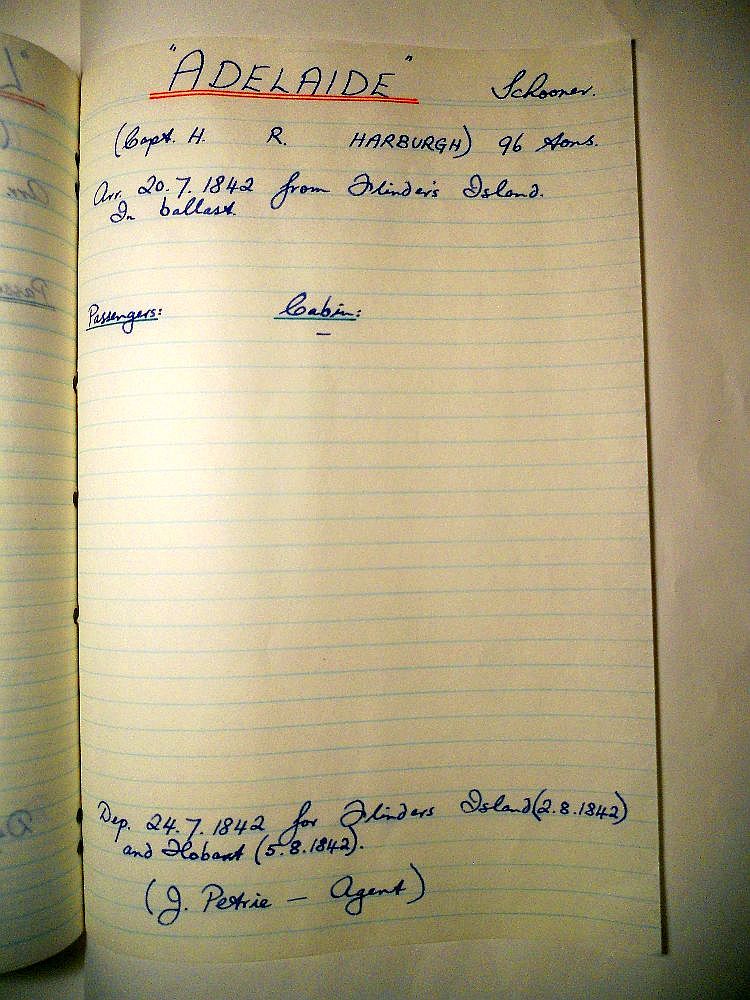 "ADELAIDE" Schooner.
(Capt. H. R. HARBURGH) 96 tons.
Arr. 20.7.1842 from Flinders Island.
In ballast.
Passengers: Cabin:
—
Dep. 24.7.1842 for Flinders Island (2.8.1842)
and Hobart (5.8.1842).
(J. Petrie — Agent)